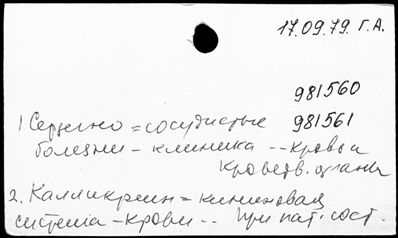 17.09.79. Г.А.
981560
1 Сердечно = сосудистые 981561
болезни - клиника -- Кровь и
Кроветв. органы
2. Калликреин = кининовая
система - Крови -- При пат. сост.